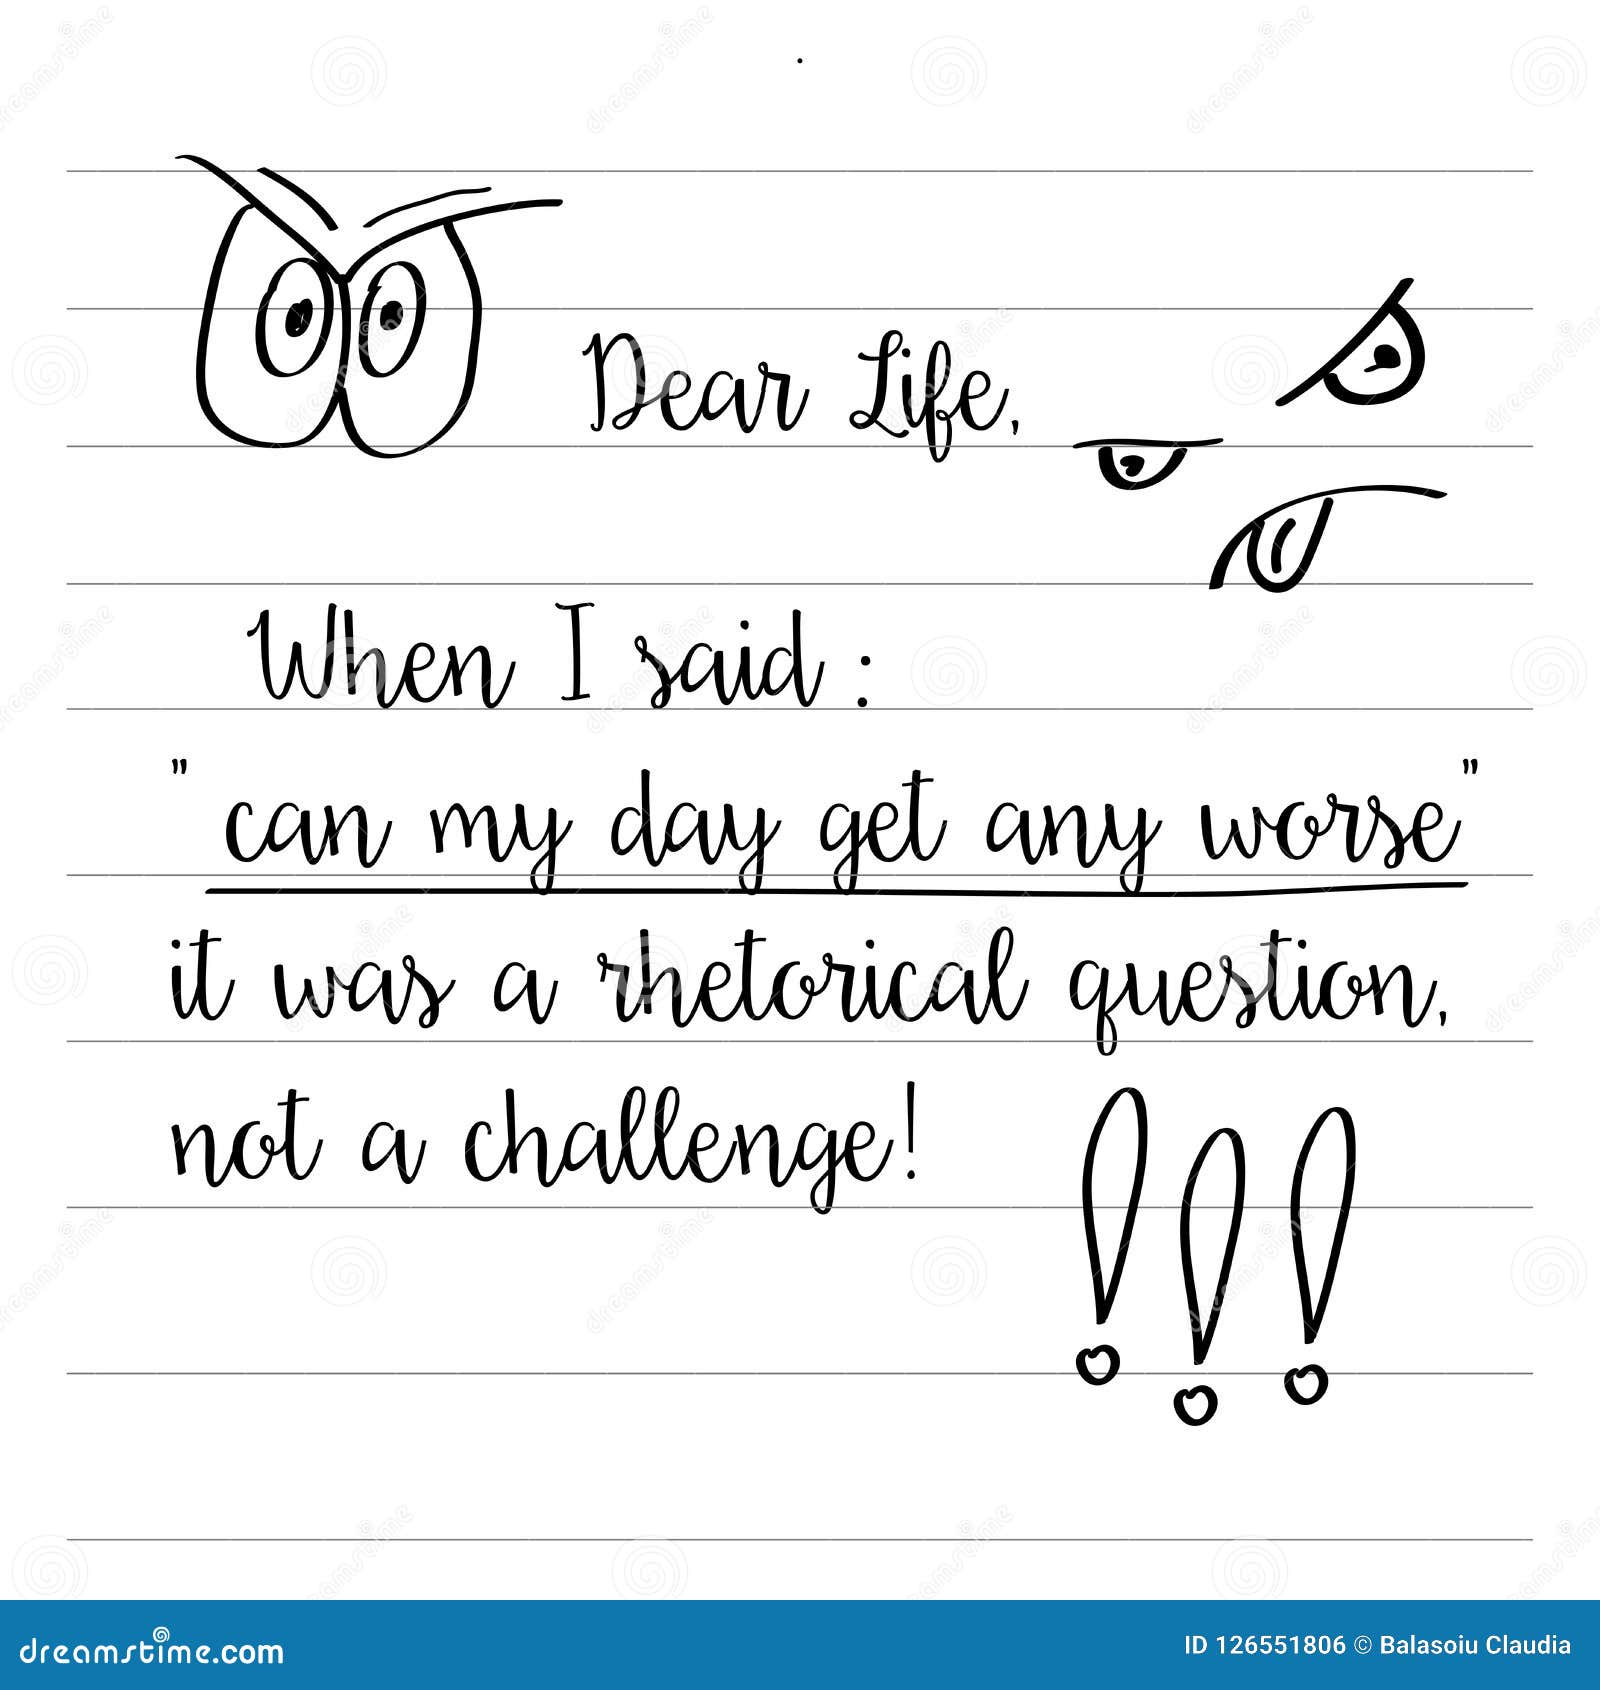 Dear Life,
When I said :
" can my day get any worse "
it was a rhetorical question,
not a challenge!
!!!
dreamstime.com
ID 126551806 © Balasoiu Claudia